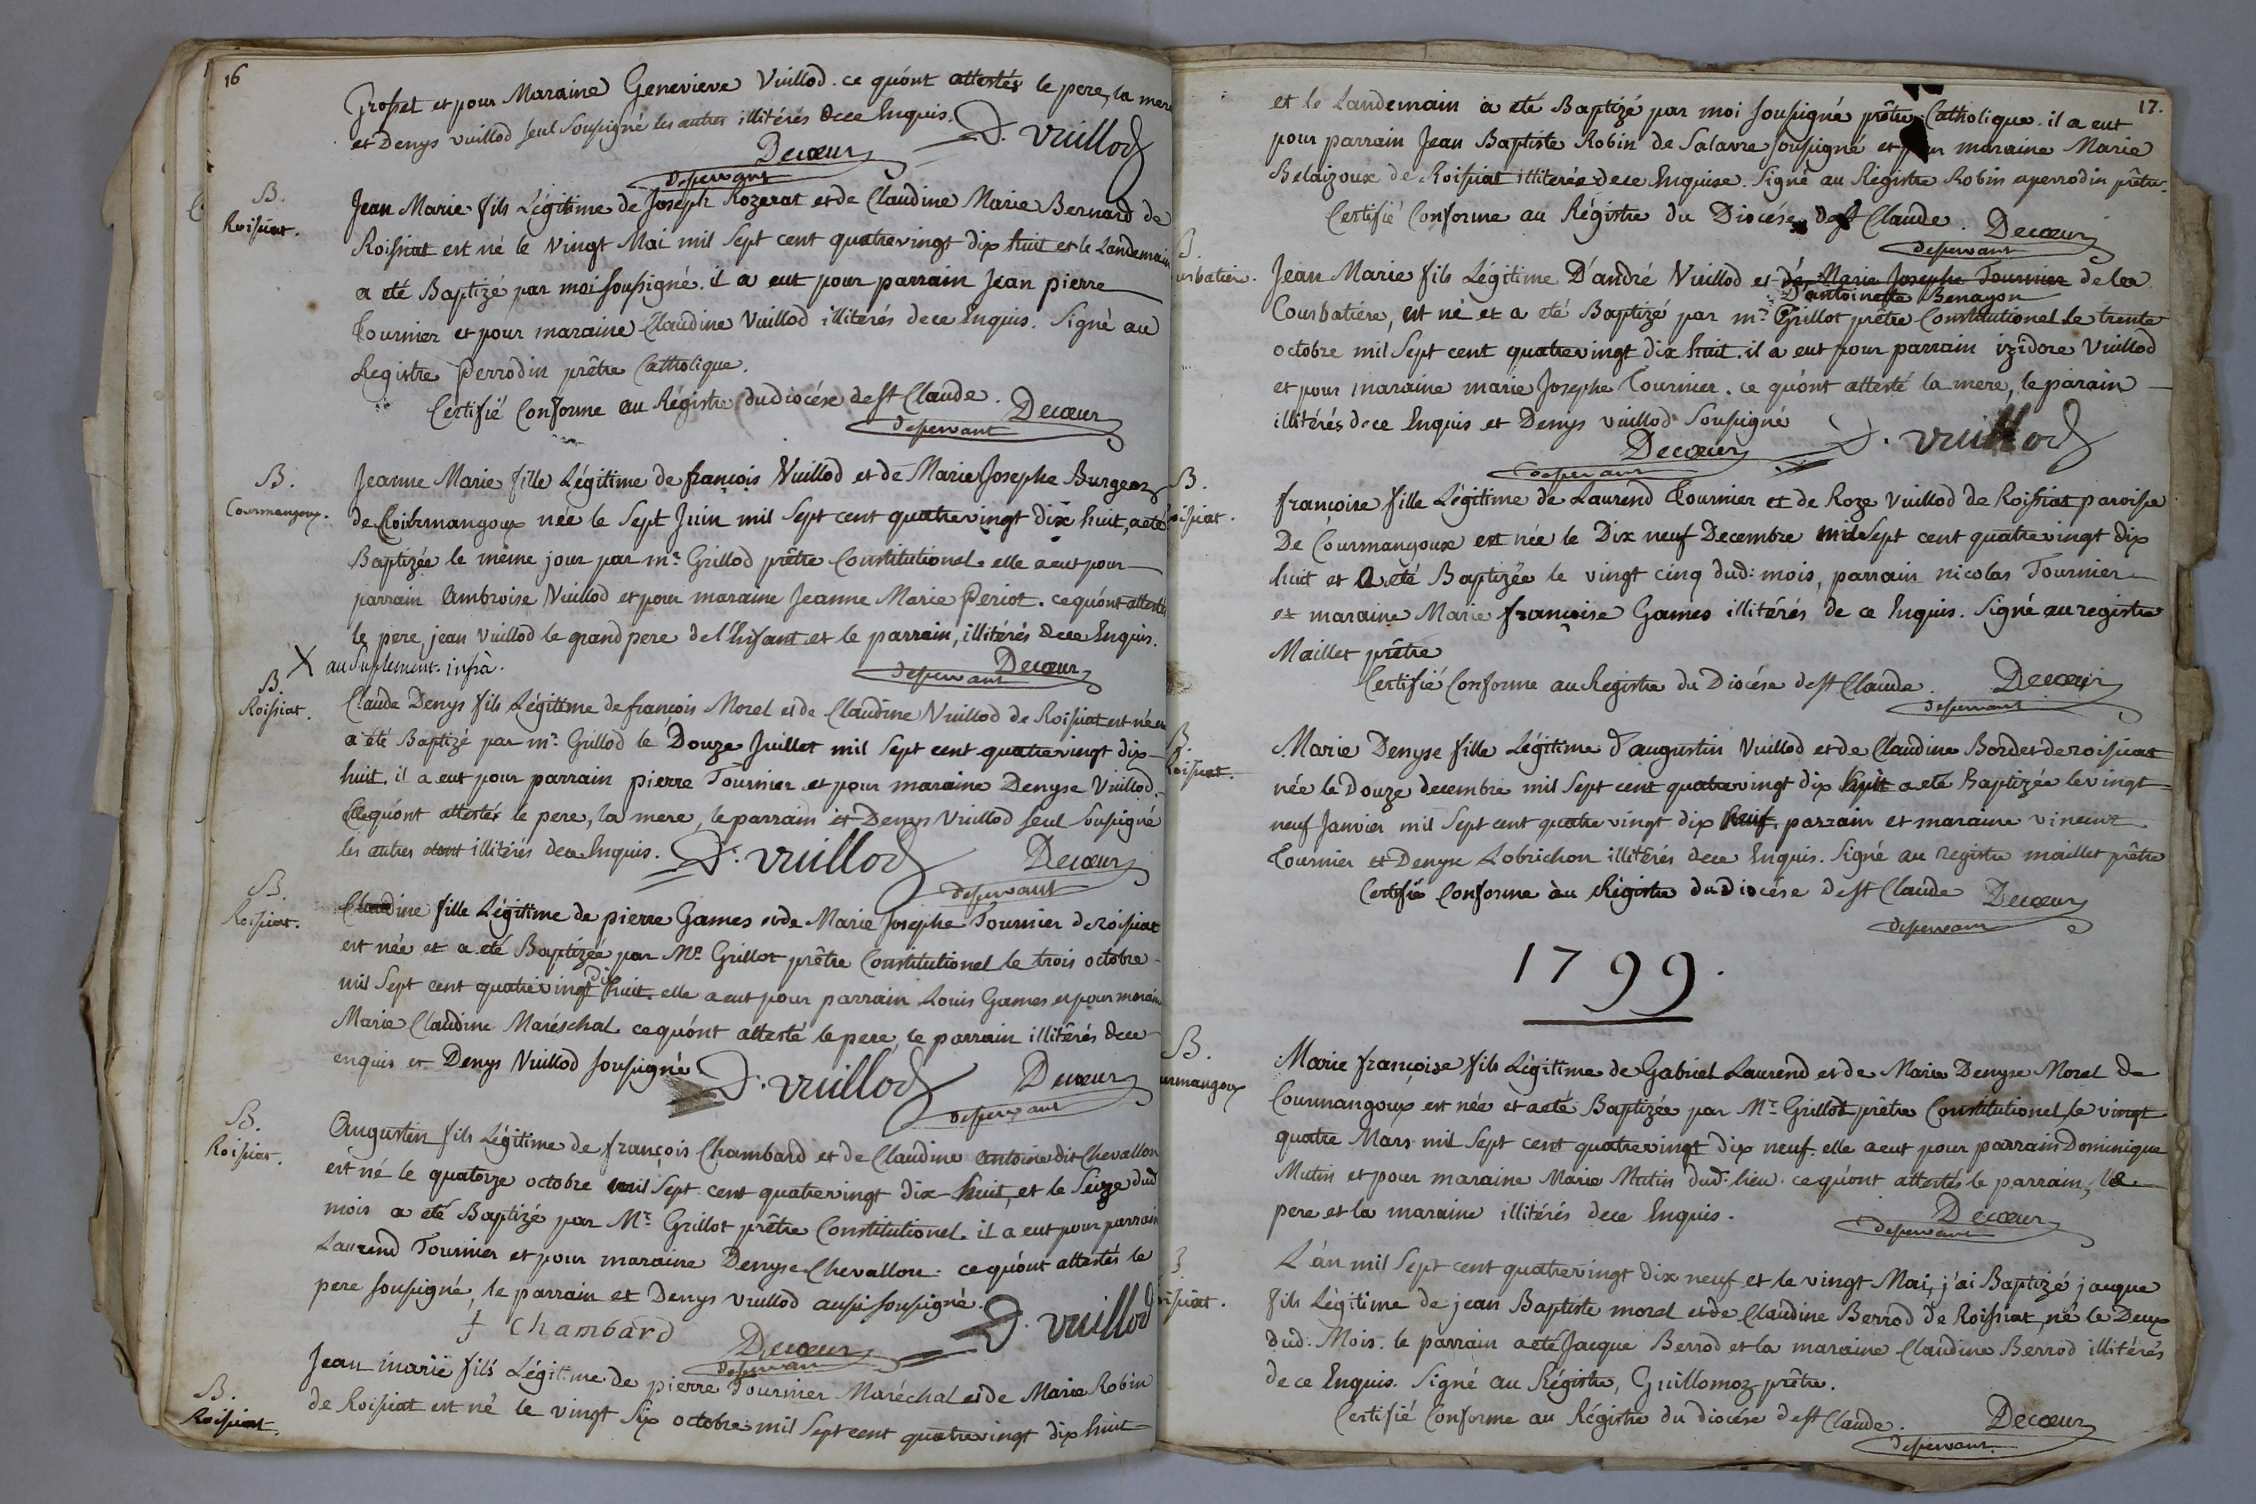 16
Grosset et pour Maraine Genevieve Vuillod. ce qu'ont attestés le pere, la mere
et Denys vuillod seul Sousigné les autres illitérés dece Enquis. D. vuillod
Decœur
deservant
B.
Roissiat.
Jean Marie fils Légitime de Joseph Rozerat et de Claudine Marie Bernard de
Roissiat est né le vingt Mai mil Sept cent quatrevingt dix huit et le Landemain
a eté Baptizé par moi sousigné. il a eut pour parrain Jean pierre
Tournier et pour maraine Claudine Vuillod illiterés dece Enquis. Signé au
Registre perrodin prêtre Catholique.
Certifié Conforme au Régistre du diocése de St Claude. Decœur
deservant
B.
Courmangoux.
Jeanne Marie fille Légitime de françois Vuillod et de Marie Josephe Burgeon
de Courmangoux née le Sept Juin mil Sept cent quatrevingt dix huit, a eté
Baptizée le même jour par mr. Grillod prêtre Constitutionel. elle a eut pour
parrain Ambroise Vuillod et pour maraine Jeanne Marie Periot. ce qu'ont attestés
le pere, jean vuillod le grand pere de l'Enfant et le parrain, illitérés dece Enquis.
X au Suplement. infrà.
Decœur
deservant
B.
Roissiat.
Claude Denys fils Légitime de françois Morel et de Claudine Vuillod de Roissiat est né et
a été Baptizé par mr. Grillod le Douze Juillet mil Sept cent quatrevingt dix
huit. il a eut pour parrain pierre Tournier et pour maraine Denyse Vuillod.
Ce qu'ont attestés le pere, la mere, le parrain et Denys Vuillod seul Sousigné
les autres illitérés dece Enquis. D. vuillod Decœur
deservant
B.
Roissiat.
Claudine fille Légitime de pierre Games et de Marie Josephe Tournier de roissiat
est née et a eté Baptizée par Mr. Grillot prêtre Constitutionel le trois octobre
mil Sept cent quatrevingt dix huit. elle a eut pour parrain Louis Games et pour maraine
Marie Claudine Maréschal ce qu'ont attesté le pere, le parrain illitérés dece
enquis et Denys Vuillod sousigné D. vuillod Decœur
deservant
B.
Roissiat.
Augustin fils Légitime de françois Chambard et de Claudine antoine dit Chevallon
est né le quatorze octobre mil Sept cent quatrevingt dix huit, et le Seize dud
mois a eté Baptizé par Mr. Grillot prêtre Constitutionel. il a eut pour parrain
Laurend Tournier et pour maraine Denyse Chevallon. ce qu'ont attestés le
pere sousigné, le parrain et Denys vuillod aussi sousigné. D. vuillod
f Chambard Decœur
deservant
B.
Roissiat.
Jean marie fils Légitime de pierre Tournier Maréchal et de Marie Robin
de Roissiat est né le vingt Six octobre mil Sept cent quatrevingt dix huit
17.
et le Landemain a eté Baptizé par moi sousigné prêtre Catholique. il a eut
pour parrain Jean Baptiste Robin de Salavre sousigné et pour maraine Marie
Belaizoux de Roissiat illiterée dece Enquise. Signé au Registre Robin perrodin prêtre.
Certifié Conforme au Régistre du Diocése de St Claude. Decœur
deservant
B.
urbatier.
Jean Marie fils Légitime D'andré Vuillod et de Marie Josephe Tournier de la
D'antoinette Benayon
Courbatiére, est né et a eté Baptizé par mr. Grillot prêtre Constitutionel le trente
octobre mil Sept cent quatrevingt dix huit. il a eut pour parrain izidore Vuillod
et pour maraine marie Josephe Tournier. ce qu'ont attesté la mere, le parain
illitérés dece Enquis et Denys vuillod Sousigné D. vuillod
Decœur
deservant
B.
oissiat.
françoise fille Légitime de Laurend Tournier et de Roze Vuillod de Roissiat paroisse
De Courmangoux est née le Dix neuf Decembre mil Sept cent quatrevingt dix
huit et a eté Baptizée le vingt cinq dud: mois, parrain nicolas Tournier
et maraine Marie françoise Games illitérés de ce Enquis. Signé au registre
Maillet prêtre
Certifié Conforme au Registre du Diocése de St Claude. Decœur
deservant
B.
Roissiat.
Marie Denyse fille Légitime d'augustin Vuillod et de Claudine Bordet de roissiat
née le Douze decembre mil Sept cent quatrevingt dix huit a eté Baptizée le vingt
neuf Janvier mil Sept cent quatre vingt dix neuf. parrain et maraine vincent
Tournier et Denyse Lobrichon illitérés dece Enquis. Signé au registre maillet prêtre
Certifié Conforme au Régistre du diocése de St Claude Decœur
deservant
1799.
B.
urmangoux
Marie françoise fils Légitime de Gabriel Laurend et de Marie Denyse Morel de
Courmangoux est née et a eté Baptizée par Mr. Grillot prêtre Constitutionel, le vingt
quatre Mars mil Sept cent quatrevingt dix neuf. elle a eut pour parrain Dominique
Mutin et pour maraine Marie Mutin dud. lieu. ce qu'ont attestés le parrain, le
pere et la maraine illitérés dece Enquis. Decœur
deservant
B.
oissiat.
L'an mil Sept cent quatrevingt dix neuf et le vingt Mai, j'ai Baptizé jaque
fils Légitime de jean Baptiste morel et de Claudine Berrod de Roissiat, né le Deux
dud. Mois. le parrain a eté Jacque Berrod et la maraine Claudine Berrod illitérés
de ce Enquis. Signé au Régistre, Guillomoz prêtre.
Certifié Conforme au Régistre du diocése de St Claude. Decœur
deservant.